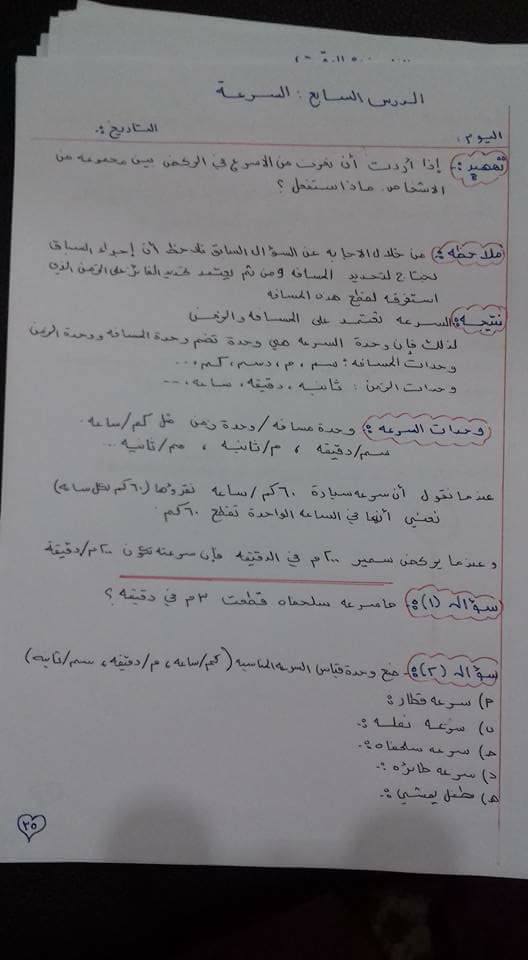 الدرس السابع : السرعة
اليوم : التاريخ :
تمهيد : إذا أردت أن تعرف من الأسرع في الركض بين مجموعه من
الاشخاص. ماذا ستفعل ؟
ملاحظه : من خلال الاجابه عن السؤال السابق نلاحظ أن إجراء السباق
يحتاج لتحديد المسافه ومن ثم يعتمد تحديد الفائز على الزمن الذي
استغرقه لقطع هذه المسافه
نتيجه : السرعه تعتمد على المسافه والزمن
لذلك فإن وحدة السرعه هي وحدة تضم وحدة المسافه ووحدة الزمن
وحدات المسافه : سم ، م ، دسم ، كم ، ...
وحدات الزمن : ثانيه ، دقيقه ، ساعه ، ...
وحدات السرعه : وحدة مسافه / وحدة زمن مثل كم/ساعه
سم/دقيقه ، م/ثانيه ، مم/ثانيه ...
عندما نقول أن سرعه سيارة ٦٠ كم / ساعه نقرؤها (٦٠ كم لكل ساعه)
نعني أنها في الساعه الواحدة تقطع ٦٠ كم
وعندما يركض سمير ٢٠٠ م في الدقيقه فإن سرعته تكون ٢٠٠ م/دقيقة
سؤال (١) : ما سرعه سلحفاه قطعت ٣ م في دقيقه ؟
سؤال (٢) : ضع وحدة قياس السرعه المناسبه (كم/ساعه ، م/دقيقه ، سم/ثانيه)
أ) سرعه قطار :
ب) سرعه نمله :
ج) سرعه سلحفاه :
د) سرعه طائره :
هـ) طفل يمشي :
٢٥